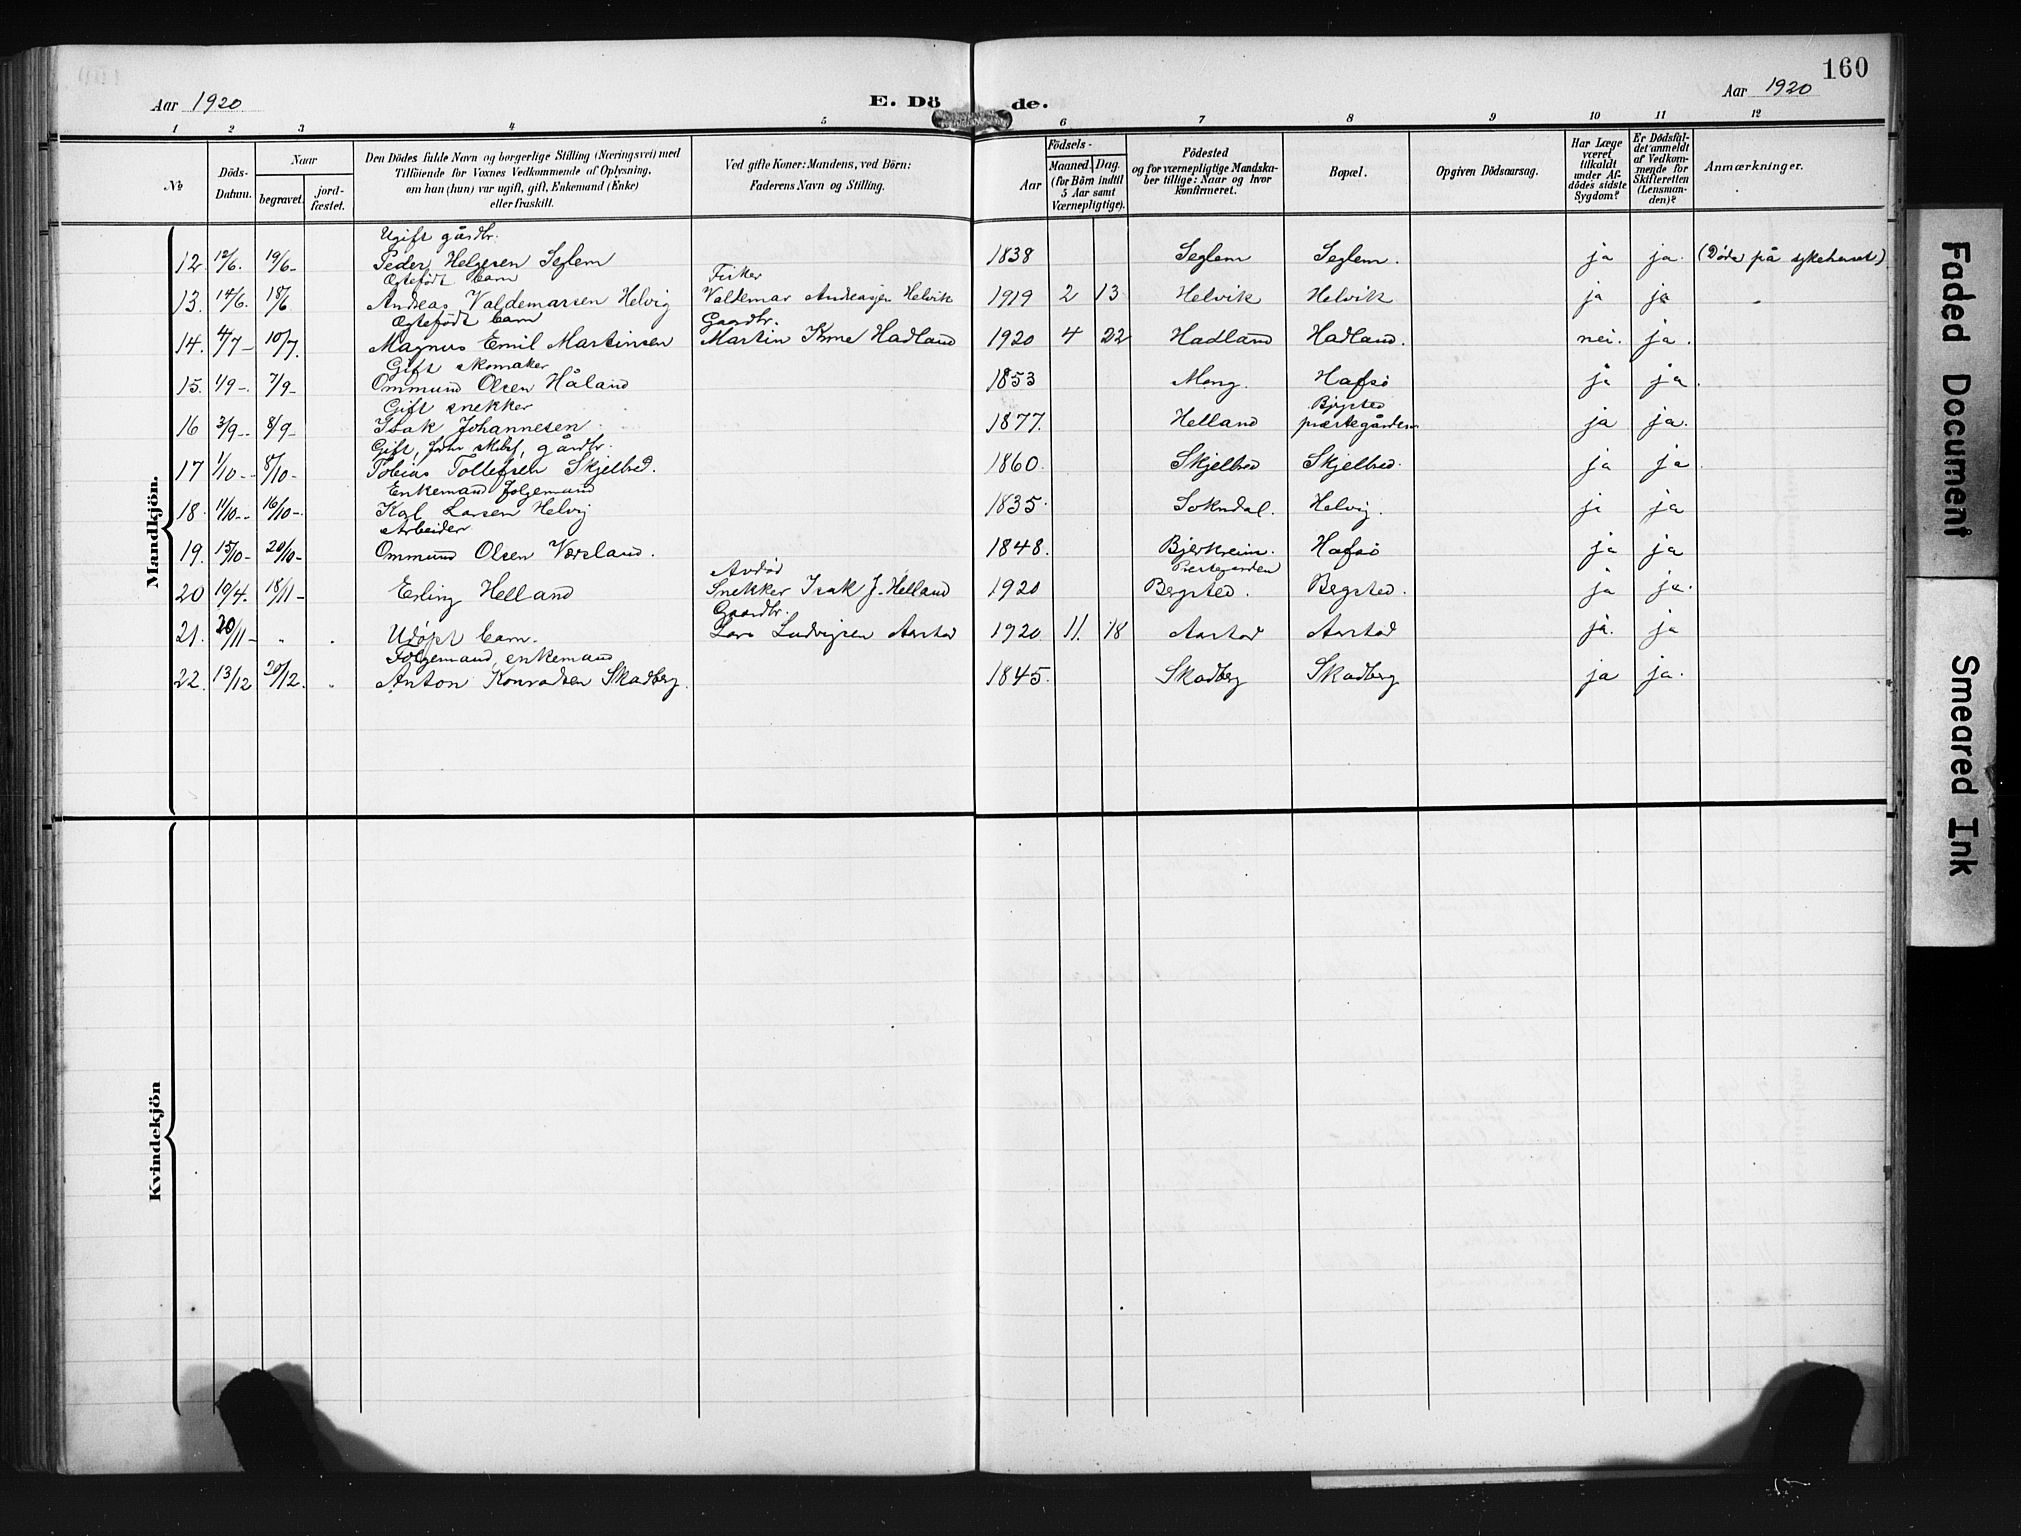 160
Aar 1920
E. Dö de.
Aar 1920
1 2 3 4 5 6 7 8 9 10 11 12
No
Döds-
Datum.
Naar
begravet.
jord-
fæstet.
Den Dödes fulde Navn og borgerlige Stilling (Næringsvei) med
Tilföiende for Voxnes Vedkommende af Oplysning,
om han (hun) var ugift, gift, Enkemand (Enke)
eller fraskilt.
Ved gifte Koner: Mandens, ved Börn:
Faderens Navn og Stilling.
Födsels-
Aar
Maaned. Dag.
(for Börn indtil
5 Aar samt
Værnepligtige).
Födested
og for værnepligtige Mandska-
ber tillige: Naar og hvor
konfirmeret.
Bopæl.
Opgiven Dödsaarsag.
Har Læge
været
tilkaldt
under Af-
dödes sidste
Sygdom?
Er Dödsfal-
det anmeldt
af Vedkom-
mende for
Skifteretten
(Lensman-
den)?
Anmærkninger.
Mandkjön.
Ugift gårdbr.
12. 12/6. 19/6- Peder Helgesen Seglem 1838 Seglem Seglem. ja ja. (Døde på sykehuset)
Egtefødt barn Fisker
13. 14/6. 18/6 Andreas Valdemarsen Helvig Valdemar Andreasen Helvik 1919 2 13 Helvik Helvik ja ja
Egtefødt barn Gaardbr.
14. 4/7- 10/7. Magnus Emil Martinsen Martin Hadland 1920 4 22 Hadland Hadland. nei. ja.
Gift skomaker
15. 1/9-. 7/9- Ommund Olsen Håland 1853 Mong. Hafsø ja ja.
Gift snekker
16 3/9-. 8/9- Isak Johannesen 1877. Helland prestegården ja ja.
Gift, gårdbr.
17 1/10-. 8/10- Tobias Tollefsen Skjelbred. 1860. Skjelbred Skjelbred. ja ja.
Enkemand folgemand
18. 11/10-. 16/10-. Karl Larsen Helvig 1835. Sokndal. Helvig. ja ja
Arbeider
19. 15/10- 20/10- Ommund Olsen 1848. Bjerkreim. Hafsø ja ja
Avdød Prestegarden
20 19/4. 18/11- Erling Helland Snekker Isak J. Helland 1920 Begsted. Begsted. ja ja.
Gaardbr.
21. 20/11- " . Udøpt barn. Lars Ludvigsen Aarstad 1920 11. 18 Aarstad Aarstad ja. ja
Folgemand, enkemand
22. 13/12 20/12. . Anton Konradsen Skadberg. 1845. Skadberg Skadberg ja ja.
Kvindekjön
Faded Document
Smeared Ink